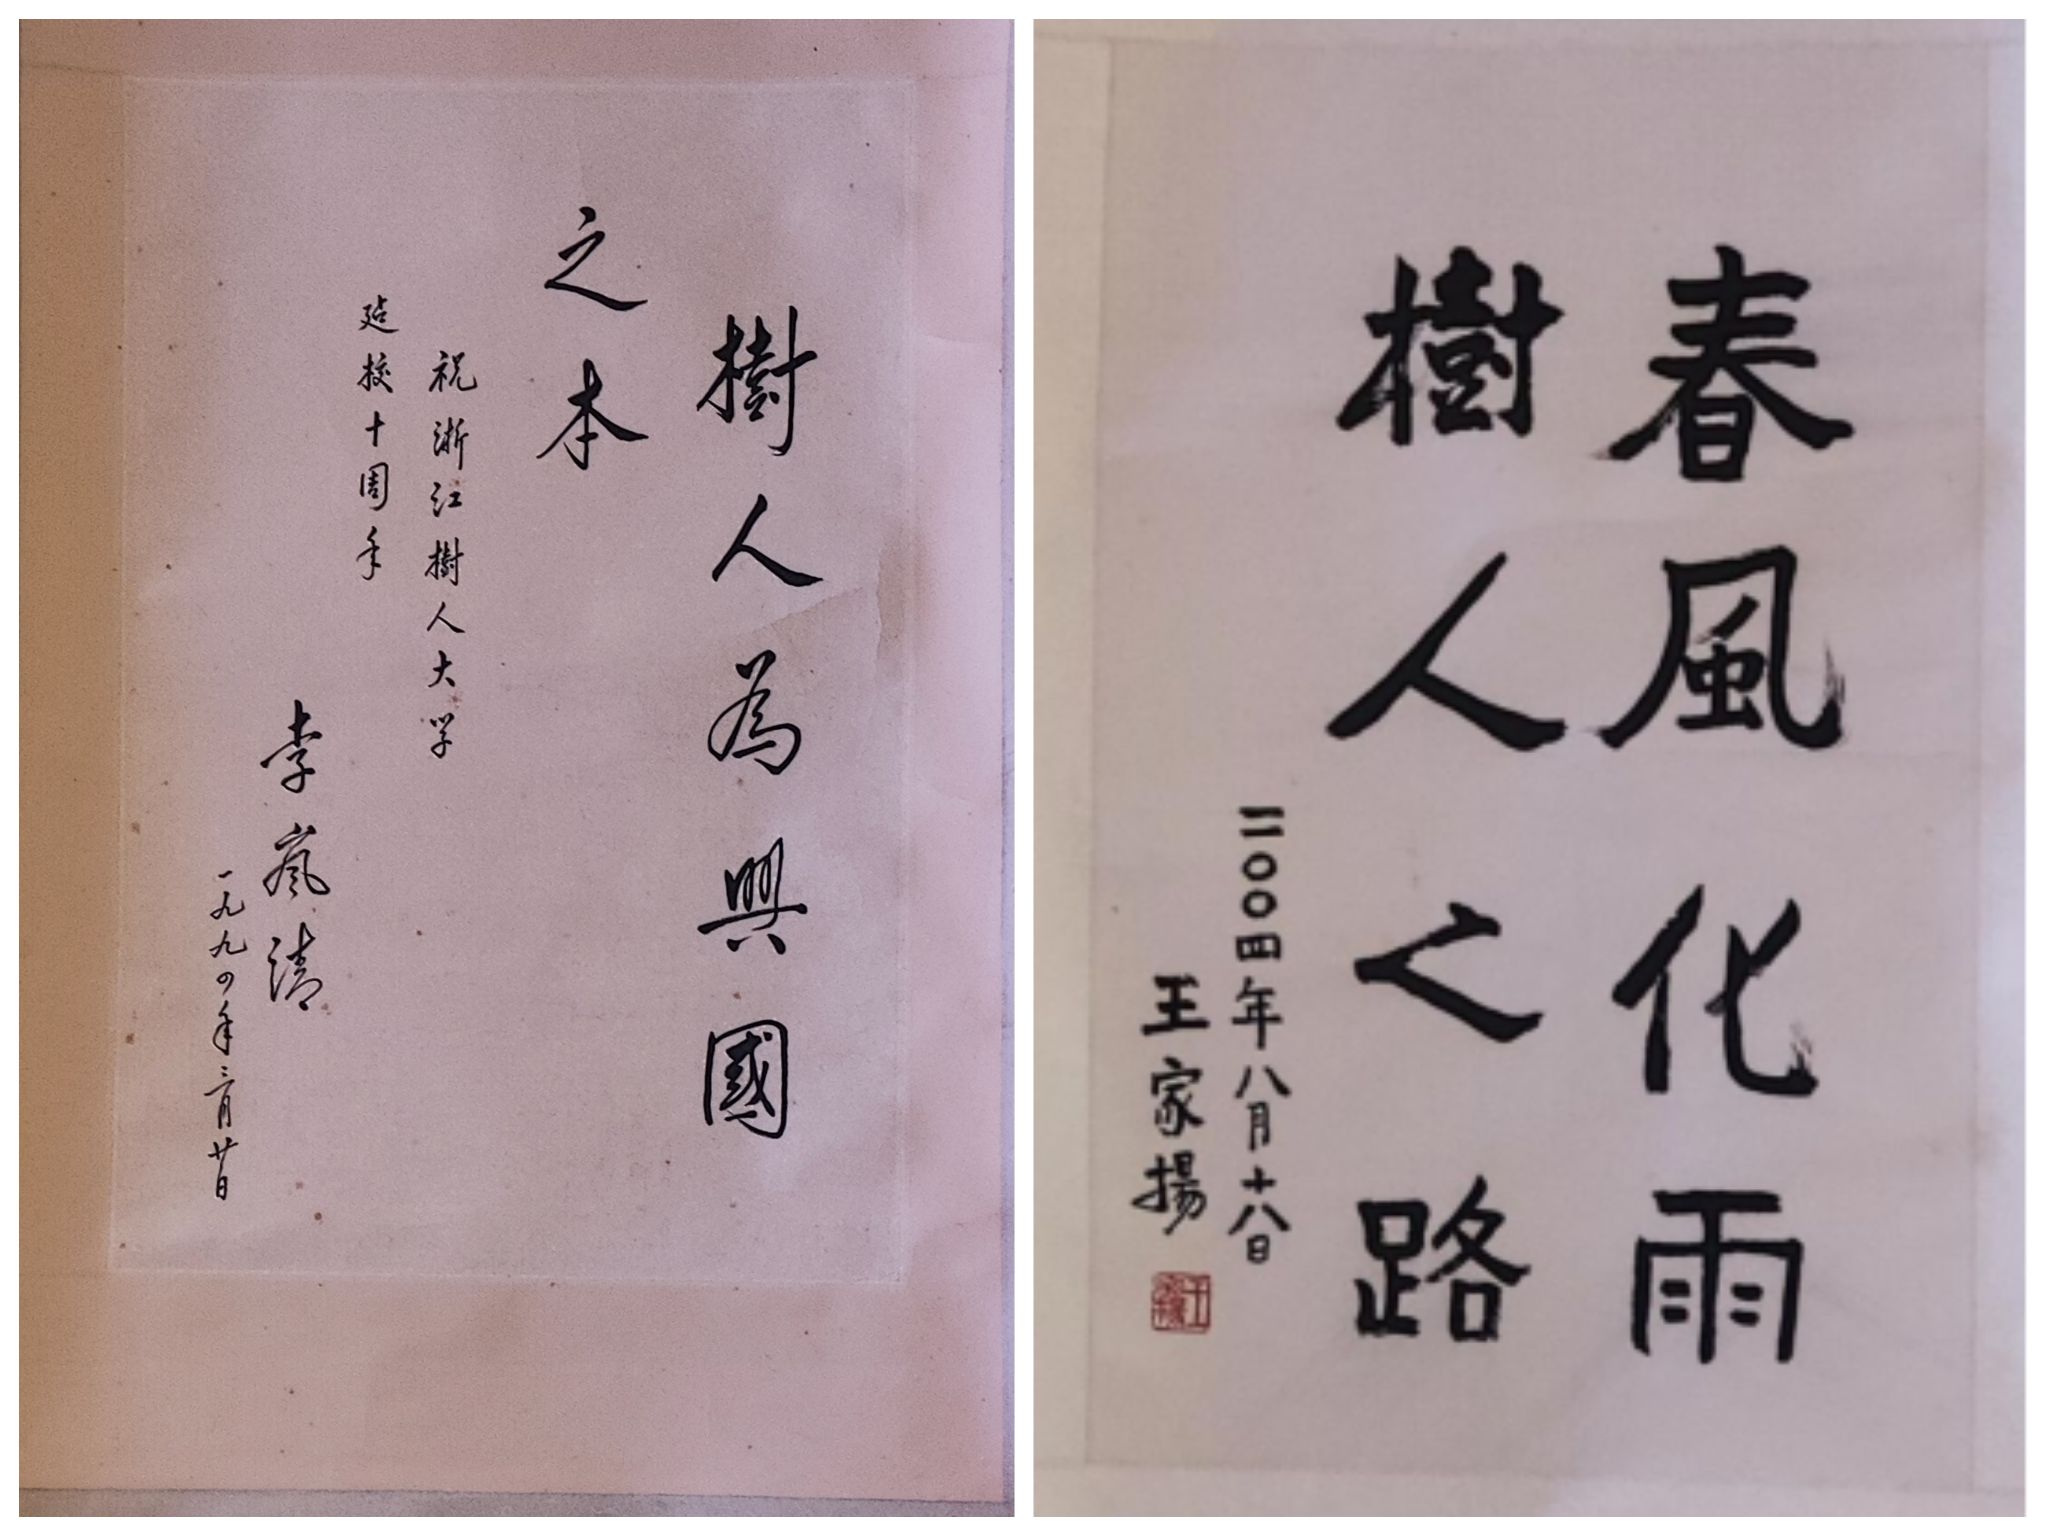 樹人為興國
之本
祝浙江樹人大学
建校十周年
李嵐清
一九九四年三月廿日
春風化雨
樹人之路
二〇〇四年八月十八日
王家揚
王家揚